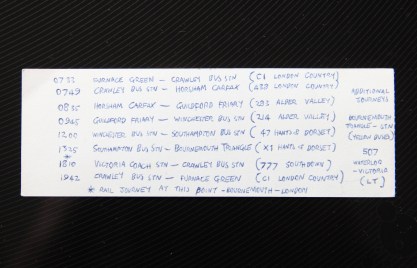 0733 FURNACE GREEN - CRAWLEY BUS STN (C1 LONDON COUNTRY)
0749 CRAWLEY BUS STN - HORSHAM CARFAX (LONDON COUNTRY)
0835 HORSHAM CARFAX - GUILDFORD FRIARY (283 ALDER VALLEY)
0945 GUILDFORD FRIARY - WINCHESTER BUS STN (214 ALDER VALLEY)
1200 WINCHESTER BUS STN - SOUTHAMPTON BUS STN (47 HANTS & DORSET)
1335 SOUTHAMPTON BUS STN - BOURNEMOUTH TRIANGLE (X1 HANTS & DORSET)
*
1810 VICTORIA COACH STN - CRAWLEY BUS STN (777 SOUTHDOWN)
1942 CRAWLEY BUS STN - FURNACE GREEN (C1 LONDON COUNTRY)
* RAIL JOURNEY AT THIS POINT - BOURNEMOUTH - LONDON
ADDITIONAL
JOURNEYS
BOURNEMOUTH
TRIANGLE - STN
(YELLOW BUSES)
507
WATERLOO
- VICTORIA
(LT)